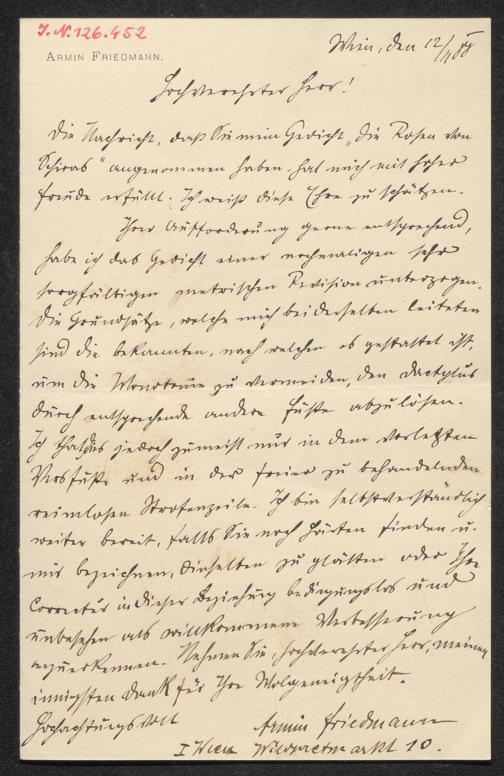 J. N. 126.452
ARMIN FRIEDMANN.
Wien, den 12/11
Hochverehrter Herr!
Die Nachricht, daß Sie mein Gedicht „Die Rosen von
Schiras“ angenommen haben, hat mich mit hoher
Freude erfüllt. Ich weiß diese Ehre zu schätzen.
Ihrer Aufforderung gerne entsprechend,
habe ich das Gedicht einer nochmaligen sehr
sorgfältigen metrischen Revision unterzogen.
Die Grundsätze, welche mich bei derselben leiteten
sind die bekannten, nach welchen es gestattet ist,
um die Monotonie zu vermeiden, den Dactylus
durch entsprechende andere Füße abzulösen.
Ich that dies jedoch zumeist nur in dem vorletzten
Versfuße und in der freier zu behandelnden
reimlosen Strofenzeile. Ich bin selbstverständlich
weiter bereit, falls Sie noch Härten finden u.
mir bezeichnen, dieselben zu glätten oder Ihre
Correctur in dieser Beziehung bedingungslos und
unbesehen als willkommene Verbesserung
anzuerkennen. Nehmen Sie, hochverehrter Herr, meinen
innigsten Dank für Ihre Wolgeneigtheit.
Hochachtungsvoll
Armin Friedmann
I Wien Wildpretmarkt 10.